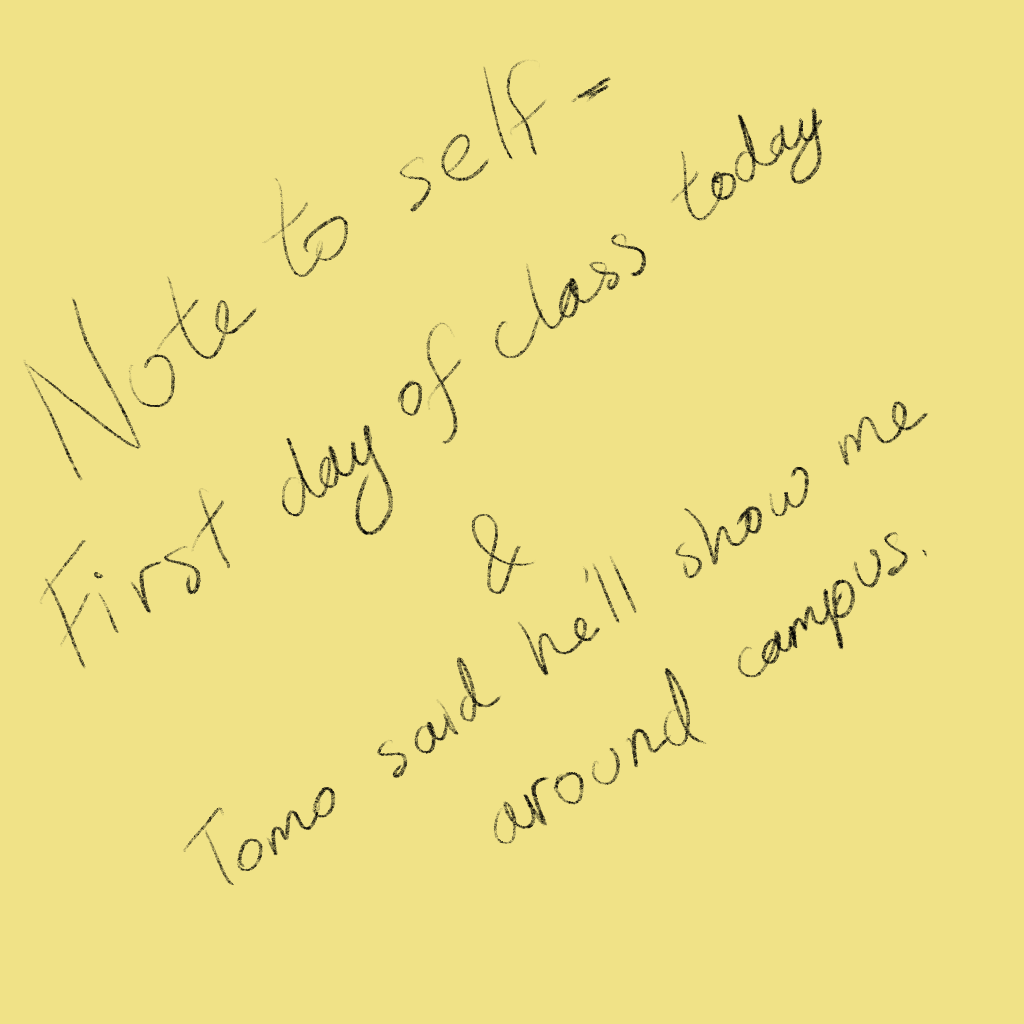 Note to self-
First day of class today
&
Tomo said he'll show me
around campus.